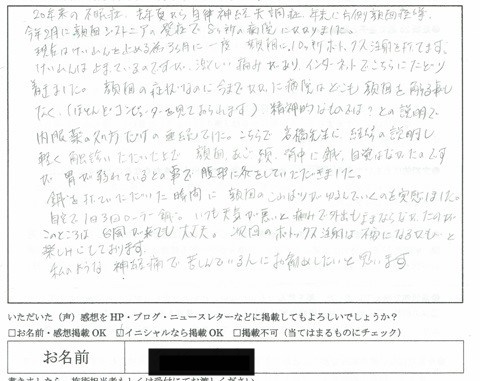 20年来の不眠症、去年夏から自律神経失調症、年末に右側顔面痙攣、
今年2月に顔面ジストニアの発症で5ヶ所の病院にかかりました。
現在はけいれんを止める為3ヶ月に一度 顔面に10ヶ所ボトックス注射を行ってます。
けいれんは止まっているのですが、激しい痛みがあり、インターネットでこちらにたどり
着きました。 顔面の症状なのに今までかかった病院はどこも 顔面を触る事も
なく、(ほとんどコンピューターを見ておられます) 精神的なものでは?との説明で
内服薬の処方だけの
説明し
軽く 触診いただいた上で 顔面、あご、頭、背中に鍼、自覚はなかったのです
が 胃が疲れているとの事で 腹部に灸をしていただきました。
鍼を打っていただいた瞬間に 顔面のこわばりがゆるんでいくのを実感しました。
自宅で1日3回ローラー鍼。 いつも天気が悪いと痛みで外出もままならなかったのが
このところは 台風が来ても大丈夫。 次回のボトックス注射は不要になるかも〜と
楽しみにしております。
私のような 神経痛で苦しんでいる人にお勧めしたいと思います
いただいた(声)感想をHP・ブログ・ニュースレターなどに掲載してもよろしいでしょうか?
□お名前・感想掲載OK ☑イニシャルなら掲載OK □掲載不可(当てはまるものにチェック)
お名前